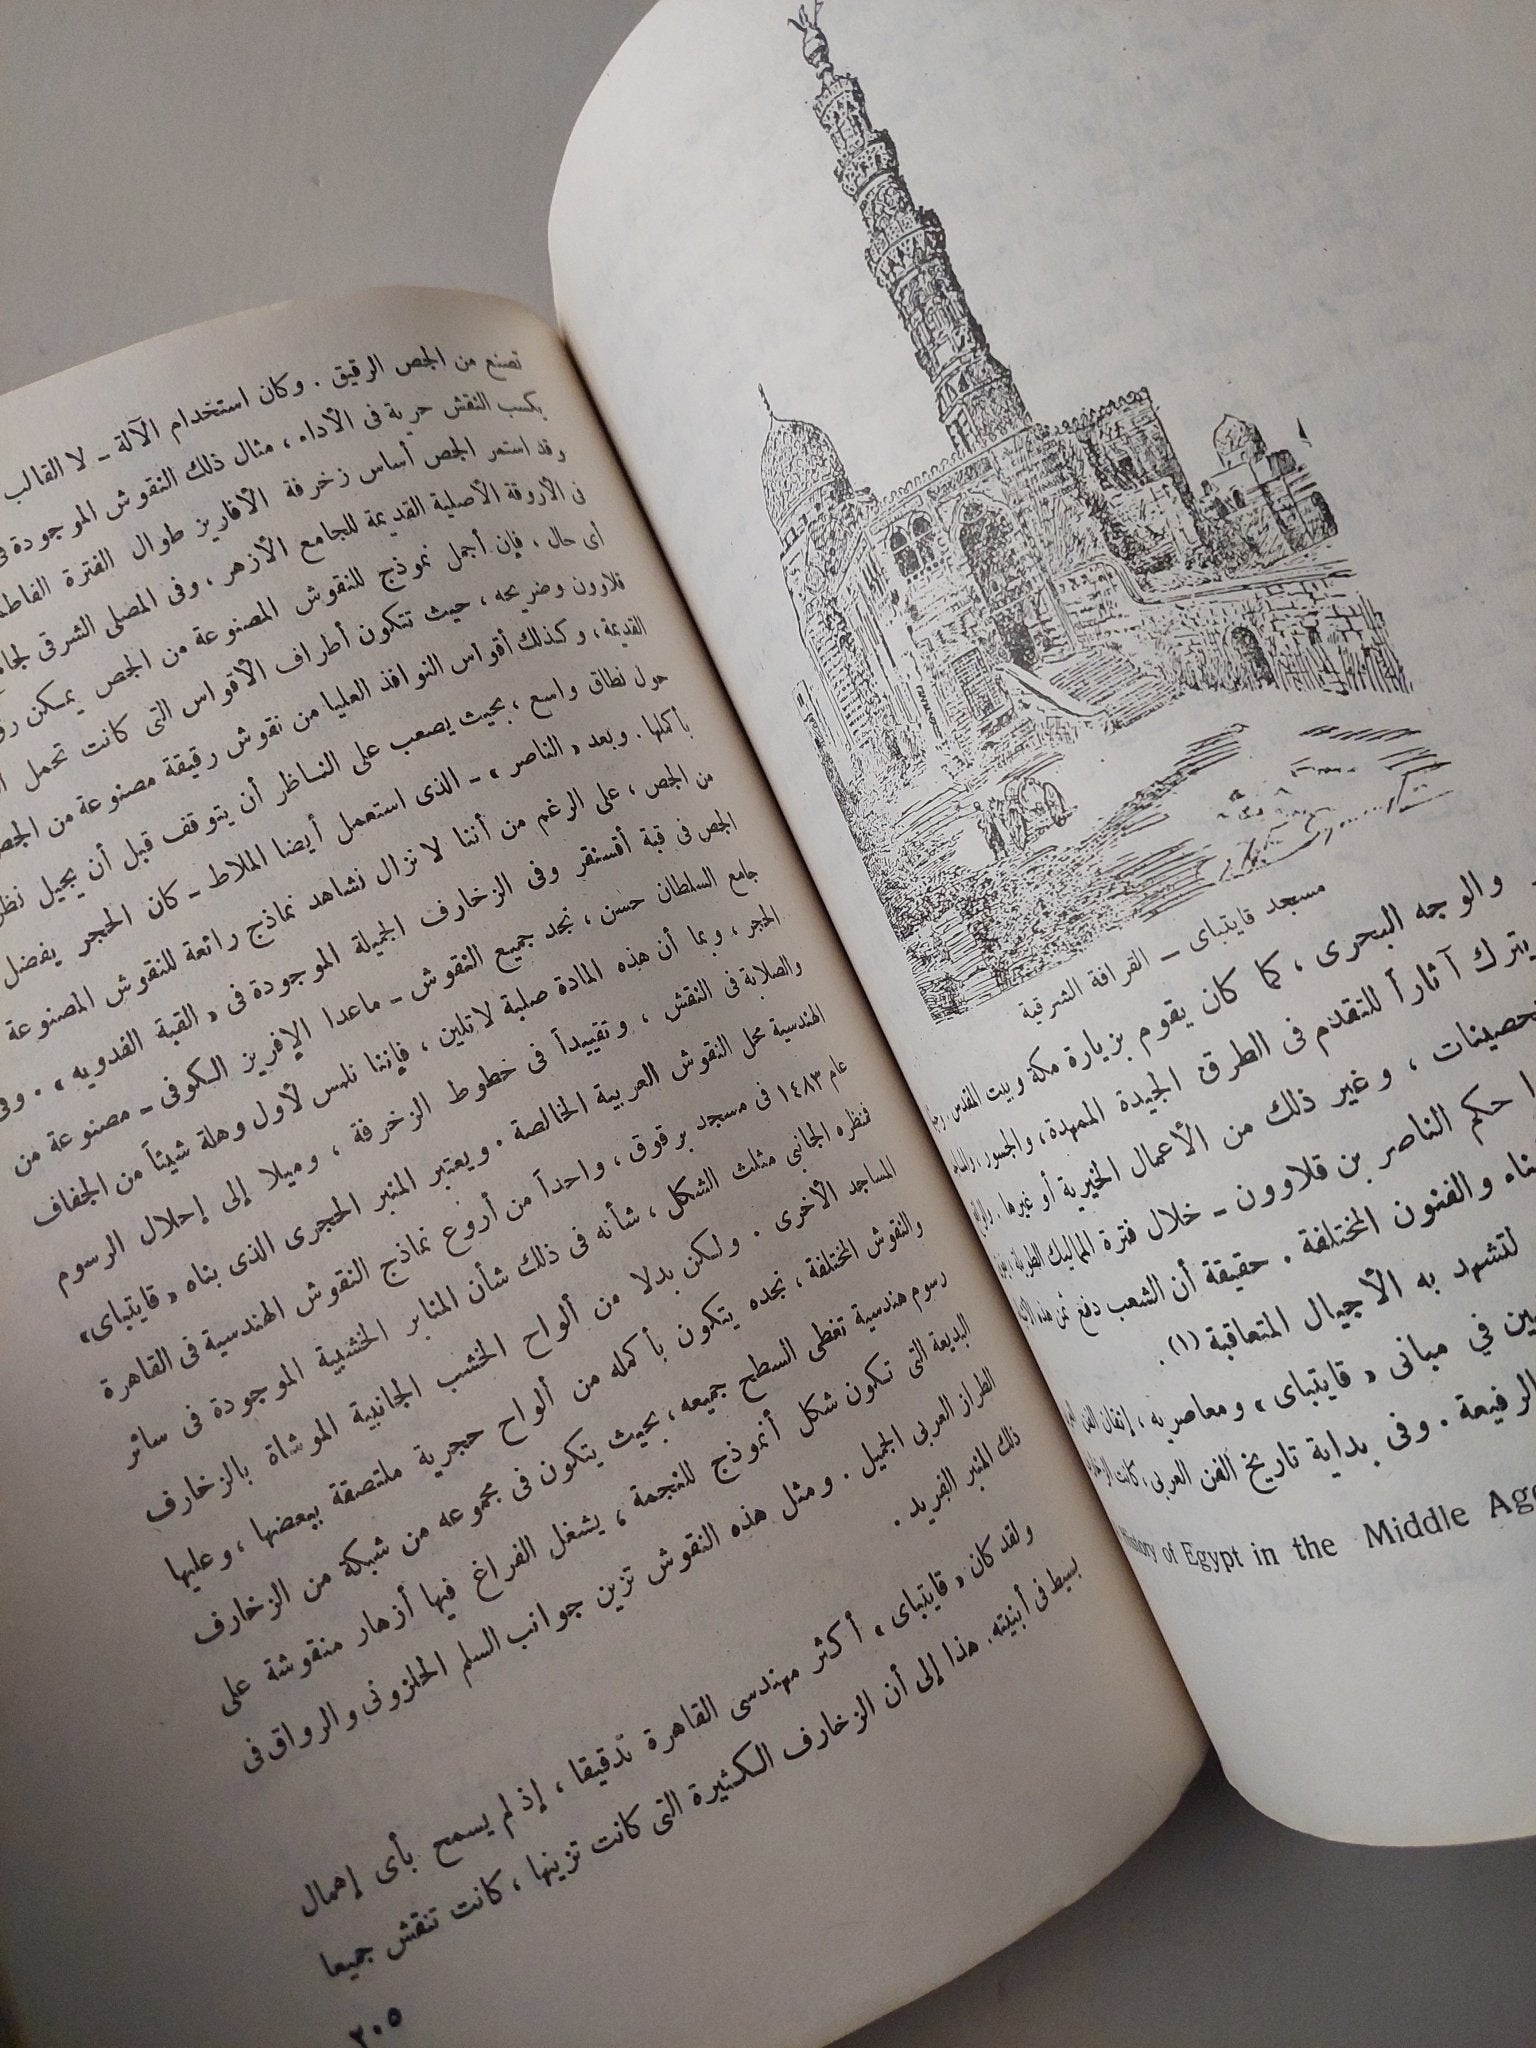 مسجد قايتباى – القرافة الشرقية
والوجه البحرى ، كما كان يقوم بزيارة مكة وبيت المقدس.
يترك آثاراً للتقدم فى الطرق الجيدة الممهدة ، والجسور ،
، وغير ذلك من الأعمال الخيرية أو غيرها .
حكم الناصر بن قلاوون – خلال فترة المماليك الطويلة ،
والفنون المختلفة . حقيقة أن الشعب دفع ثمن هذه
لتشهد به الأجيال المتعاقبة (١) .
فى مبانى « قايتباى » ومعاصريه ، إتقان الفن
الرفيعة . وفى بداية تاريخ الفن العربى ، كانت
History of Egypt in the Middle
تصنع من الجص الرقيق . وكان استخدام الآلة – لا القالب
يكسب النقش حرية فى الأداء ، مثال ذلك النقوش الموجودة
وقد استمر الجص أساس زخرفة الأفاريز طوال الفترة
فى الأروقة الأصلية القديمة للجامع الأزهر ، وفى المصلى الشرقى
أى حال ، فإن أجمل نموذج للنقوش المصنوعة من الجص يمكن
قلاوون وضريحه ، حيث تتكون أطراف الأقواس التى كانت تحمل
القديمة ، وكذلك أقواس النوافذ العليا من نقوش رقيقة مصنوعة من الجص
حول نطاق واسع ، بحيث يصعب على الناظر أن يتوقف قبل أن يجيل
بأكملها . وبعد « الناصر » – الذى استعمل أيضا الملاط – كان الحجر يفضل
من الجص ، على الرغم من أننا لا نزال نشاهد نماذج رائعة للنقوش المصنوعة
الجص فى قبة أقسنقر وفى الزخارف الجميلة الموجودة فى « القبة الفدويه » . وفى
جامع السلطان حسن ، نجد جميع النقوش – ماعدا الإفريز الكوفى – مصنوعة من
الحجر ، وبما أن هذه المادة صلبة لا تلين ، فإننا نلمس لأول وهلة شيئاً من الجفاف
والصلابة فى النقش ، وتقييداً فى خطوط الزخرفة ، وميلا إلى إحلال الرسوم
الهندسية محل النقوش العربية الخالصة . ويعتبر المنبر الحجرى الذى بناه « قايتباى »
عام ١٤٨٣ فى مسجد برقوق ، واحداً من أروع نماذج النقوش الهندسية فى القاهرة
فنظره الجانبى مثلث الشكل ، شأنه فى ذلك شأن المنابر الخشبية الموجودة فى سائر
المساجد الأخرى . ولكن بدلا من ألواح الخشب الجانبية الموشاة بالزخارف
والنقوش المختلفة ، نجده يتكون بأكمله من ألواح حجرية ملتصقة ببعضها ، وعليها
رسوم هندسية تغطى السطح جميعه ، بحيث يتكون فى مجموعه من شبكة من الزخارف
البديعة التى تكون شكل أنموذج للنجمة ، يشغل الفراغ فيها أزهار منقوشة على
الطراز العربى الجميل . ومثل هذه النقوش تزين جوانب السلم الحلزونى والرواق فى
ذلك المنبر الفريد .
ولقد كان « قايتباى » أكثر مهندسى القاهرة تدقيقا ، إذ لم يسمح بأى إهمال
بسيط فى أبنيته. هذا إلى أن الزخارف الكثيرة التى كانت تزينها ، كانت تنقش جميعا
٣٠٥